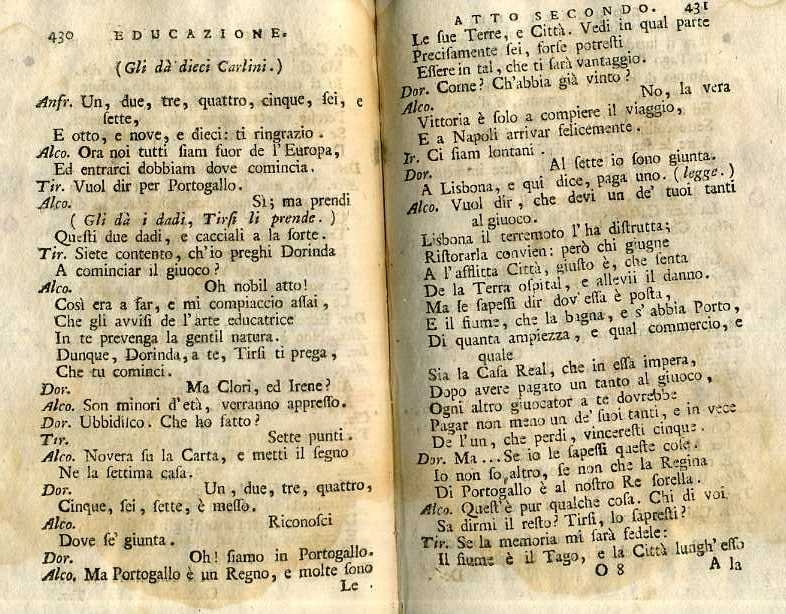 430 EDUCAZIONE.
(Gli dà dieci Carlini.)
Anfr. Un, due, tre, quattro, cinque, ſei, e
ſette,
E otto, e nove, e dieci: ti ringrazio.
Alco. Ora noi tutti ſiam fuor de l'Europa,
Ed entrarci dobbiam dove comincia.
Tir. Vuol dir per Portogallo.
Alco. Sì; ma prendi
(Gli dà i dadi, Tirſi li prende.)
Queſti due dadi, e cacciali a la ſorte.
Tir. Siete contento, ch'io preghi Dorinda
A cominciar il giuoco?
Alco. Oh nobil atto!
Così era a far, e mi compiaccio aſſai,
Che gli avviſi de l'arte educatrice
In te prevenga la gentil natura.
Dunque, Dorinda, a te, Tirſi ti prega,
Che tu cominci.
Dor. Ma Clori, ed Irene?
Alco. Son minori d'età, verranno appreſſo.
Dor. Ubbidiſco. Che ho fatto?
Tir. Sette punti.
Alco. Novera ſu la Carta, e metti il ſegno
Ne la ſettima caſa.
Dor. Un, due, tre, quattro,
Cinque, ſei, ſette, è meſſo.
Alco. Riconoſci
Dove ſe' giunta.
Dor. Oh! ſiamo in Portogallo.
Alco. Ma Portogallo è un Regno, e molte ſono
Le
ATTO SECONDO. 431
Le ſue Terre, e Città. Vedi in qual parte
Preciſamente ſei, forſe potreſti
Eſſere in tal, che ti ſarà vantaggio.
Dor. Come? Ch'abbia già vinto?
Alco. No, la vera
Vittoria è ſolo a compiere il viaggio,
E a Napoli arrivar felicemente.
Ir. Ci ſiam lontani.
Dor. Al ſette io ſono giunta.
A Lisbona, e qui dice, paga uno. (legge.)
Alco. Vuol dir, che devi un de' tuoi tanti
al giuoco.
Lisbona il terremoto l'ha diſtrutta;
Riſtorarla convien: però chi giugne
A l'afflitta Città, giuſto è, che ſenta
De la Terra oſpital, e allevii il danno.
Ma ſe ſapeſſi dir dov'eſſa è poſta,
E il fiume, che la bagna, e s'abbia Porto,
Di quanta ampiezza, e qual commercio, e
quale
Sia la Caſa Real, che in eſſa impera,
Dopo avere pagato un tanto al giuoco,
Ogni altro giuocator a te dovrebbe
Pagar non meno un de' ſuoi tanti, e in vece
De l'un, che perdi, vincereſti cinque.
Dor. Ma... Se io le ſapeſſi queſte coſe.
Io non ſo altro, ſe non che la Regina
Di Portogallo è al noſtro Re ſorella.
Alco. Queſt'è pur qualche coſa. Chi di voi
Sa dirmi il reſto? Tirſi, lo ſapreſti?
Tir. Se la memoria mi ſarà fedele:
Il fiume è il Tago, e la Città lungh'eſſo
O 8 A la